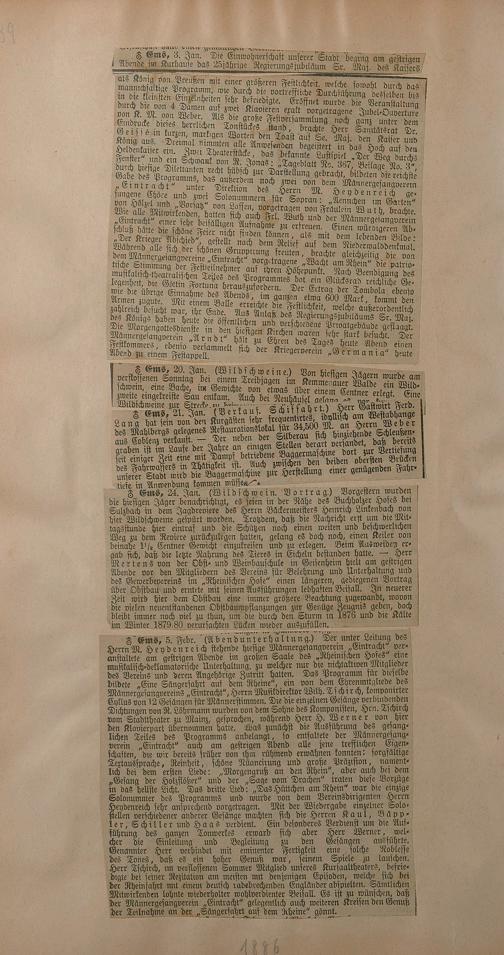 39
§ Ems, 3. Jan. Die Einwohnerschaft unserer Stadt beging am gestrigen
Abende im Kurhause das 25jährige Regierungsjubiläum Sr. Maj. des Kaisers
als König von Preußen mit einer größeren Festlichkeit, welche sowohl durch das
mannhaftige Programm, wie durch die vortreffliche Durchführung desselben bis
in die kleinsten Einzelheiten sehr befriedigte. Eröffnet wurde die Veranstaltung
durch die von 4 Damen auf zwei Klavieren exakt vorgetragene Jubel-Ouverture
von K. M. von Weber. Als die große Festversammlung noch ganz unter dem
Eindrucke dieses herrlichen Tonstückes stand, brachte Herr Sanitätsrat Dr.
in kurzen, markigen Worten den Toast auf Se. Maj. den Kaiser und
König aus. Dreimal stimmten alle Anwesenden begeistert in das Hoch auf den
Heldenkaiser ein. Zwei Theaterstücke, das bekannte Lustspiel „Der Weg durchs
Fenster" und ein Schwank von R. Jonas: „Tageblatt No. 367, Beilage No. 3",
durch hiesige Dilettanten recht hübsch zur Darstellung gebracht, bildeten die reichste
Gabe des Programms, das außerdem noch zwei von dem Männergesangverein
„Eintracht" unter Direktion des Herrn M. Heydenreich ge-
sungene Chöre und zwei Solonummern für Sopran: „Aennchen im Garten"
von Hölzel und „Vorsatz" von Lassen, vorgetragen von Fräulein Wuth, brachte.
Wie alle Mitwirkenden, hatten sich auch Frl. Wuth und der Männergesangverein
„Eintracht" einer sehr beifälligen Aufnahme zu erfreuen. Einen würdigeren Ab-
schluß hätte die schöne Feier nicht finden können, als mit dem lebenden Bilde:
„Der Krieger Abschied", gestellt nach dem Relief auf dem Niederwalddenkmal.
Während alle sich der schönen Gruppierung freuten, brachte gleichzeitig die von
dem Männergesangverein „Eintracht" vorgetragene „Wacht am Rhein" die patrio-
tische Stimmung der Festteilnehmer auf ihren Höhepunkt. Nach Beendigung des
musikalisch-theatralischen Teiles des Programms bot ein Glücksrad reichliche Ge-
legenheit, die Göttin Fortuna herauszufordern. Der Ertrag der Tombola, ebenso
wie die übrige Einnahme des Abends, im ganzen etwa 600 Mark, kommt den
Armen zugute. Mit einem Balle erreichte die Festlichkeit, welche außerordentlich
zahlreich besucht war, ihr Ende. Aus Anlaß des Regierungsjubiläums Sr. Maj.
des Königs haben heute die öffentlichen und verschiedene Privatgebäude geflaggt.
Die Morgengottesdienste in den hiesigen Kirchen waren sehr stark besucht. Der
Männergesangverein „Arndt" hält zu Ehren des Tages heute Abend einen
Festkommers, ebenso versammelt sich der Kriegerverein „Germania" heute
Abend zu einem Festappell.
§ Ems, 20. Jan. (Wildschweine.) Von hiesigen Jägern wurde am
verflossenen Sonntag bei einem Treibjagen im Kemmenauer Walde ein Wild-
schwein, eine Bache, im Gewichte von etwas über einem Centner erlegt. Eine
zweite eingekreiste Sau entkam. Auch bei Neuhäusel
Wildschweine zur Strecke
§ Ems, 21. Jan. (Verkauf. Schiffahrt.) Herr Gastwirt Ferd.
Lang hat sein von den Kurgästen sehr frequentiertes, idyllisch am Westabhange
des Mahlbergs gelegenes Restaurationslokal für 34,500 M. an Herrn Weber
aus Coblenz verkauft. — Der neben der Silberau sich hinziehende Schleußen-
graben ist im Laufe der Jahre an einigen Stellen derart versandet, daß bereits
seit einiger Zeit eine mit Dampf betriebene Baggermaschine dort zur Vertiefung
des Fahrwassers in Thätigkeit ist. Auch zwischen den beiden obersten Brücken
unserer Stadt wird die Baggermaschine zur Herstellung einer genügenden Fahr-
tiefe in Anwendung kommen müssen.
§ Ems, 24. Jan. (Wildschwein. Vortrag.) Vorgestern wurden
die hiesigen Jäger benachrichtigt, es seien in der Nähe des Buchholzer Hofes bei
Sulzbach in dem Jagdreviere des Herrn Bäckermeisters Heinrich Linkenbach von
hier Wildschweine gespürt worden. Trotzdem, daß die Nachricht erst um die Mit-
tagsstunde hier eintraf und die Schützen noch einen weiten und beschwerlichen
Weg zu dem Reviere zurückzulegen hatten, gelang es doch noch, einen Keiler von
beinahe 1½ Centner Gewicht einzukreisen und zu erlegen. Beim Ausweiden er-
gab sich, daß die letzte Nahrung des Tieres in Eicheln bestanden hatte. — Herr
Mertens von der Obst- und Weinbauschule in Geisenheim hielt am gestrigen
Abende vor den Mitgliedern des Vereins für Belehrung und Unterhaltung und
des Gewerbevereins im „Rheinischen Hofe" einen längeren, gediegenen Vortrag
über Obstbau und erntete mit seinen Ausführungen lebhaften Beifall. In neuerer
Zeit wird hier dem Obstbau eine immer größere Beachtung zugewandt, wovon
die vielen neuentstandenen Obstbaumpflanzungen zur Genüge Zeugnis geben, doch
bleibt immer noch viel zu thun, um die durch den Sturm in 1876 und die Kälte
im Winter 1879.80 verursachten Lücken wieder auszufüllen.
§ Ems, 5. Febr. (Abendunterhaltung.) Der unter Leitung des
Herrn M. Heydenreich stehende hiesige Männergesangverein „Eintracht" ver-
anstaltete am gestrigen Abende im großen Saale des „Rheinischen Hofes" eine
musikalisch-deklamatorische Unterhaltung, zu welcher nur die nichtaktiven Mitglieder
des Vereins und deren Angehörige Zutritt hatten. Das Programm für dieselbe
bildete „Eine Sängerfahrt auf dem Rheine", ein von dem Ehrenmitgliede des
Männergesangvereins „Eintracht", Herrn Musikdirektor Wilh. Tschirch, komponirter
Cyclus von 12 Gesängen für Männerstimmen. Die die einzelnen Gesänge verbindenden
Dichtungen von R. Löhrmann wurden von dem Sohne des Komponisten, Hrn. Tschirch
vom Stadttheater zu Mainz, gesprochen, während Herr H. Werner von hier
den Klavierpart übernommen hatte. Was zunächst die Ausführung des gesang-
lichen Teiles des Programms anbelangt, so entfaltete der Männergesang-
verein „Eintracht" auch am gestrigen Abend alle jene trefflichen Eigen-
schaften, die wir bereits früher von ihm rühmend erwähnen konnten: sorgfältige
Textaussprache, Reinheit, schöne Nüancirung und große Präzision, nament-
lich bei dem ersten Liede: „Morgengruß an den Rhein", aber auch bei dem
„Gesang der Holzflößer" und der „Sage vom Drachen" traten diese Vorzüge
in das hellste Licht. Das dritte Lied: „Das Hüttchen am Rhein" war die einzige
Solonummer des Programms und wurde von dem Vereinsdirigenten Herrn
Heydenreich sehr ansprechend vorgetragen. Mit der Wiedergabe einzelner Solo-
stellen verschiedener anderer Gesänge machten sich die Herren Kaul, Gäpp-
ler, Schiller und Haas verdient. Ein besonderes Verdienst um die Auf-
führung des ganzen Tonwerkes erwarb sich aber Herr Werner, wel-
cher die Einleitung und Begleitung zu den Gesängen ausführte.
Genannter Herr verbindet mit eminenter Fertigkeit eine solche Noblesse
des Tones, daß es ein hoher Genuß war, seinem Spiele zu lauschen.
Herr Tschirch, im verflossenen Sommer Mitglied unseres Kursaaltheaters, befrie-
digte bei seiner Rezitation am meisten mit denjenigen Episoden, welche sich bei
der Rheinfahrt mit einem deutsch radebrechenden Engländer abspielten. Sämtlichen
Mitwirkenden lohnte wiederholter wohlverdienter Beifall. Es ist zu wünschen, daß
der Männergesangverein „Eintracht" gelegentlich auch weiteren Kreisen den Genuß
der Teilnahme an der „Sängerfahrt auf dem Rheine" gönnt.
1886